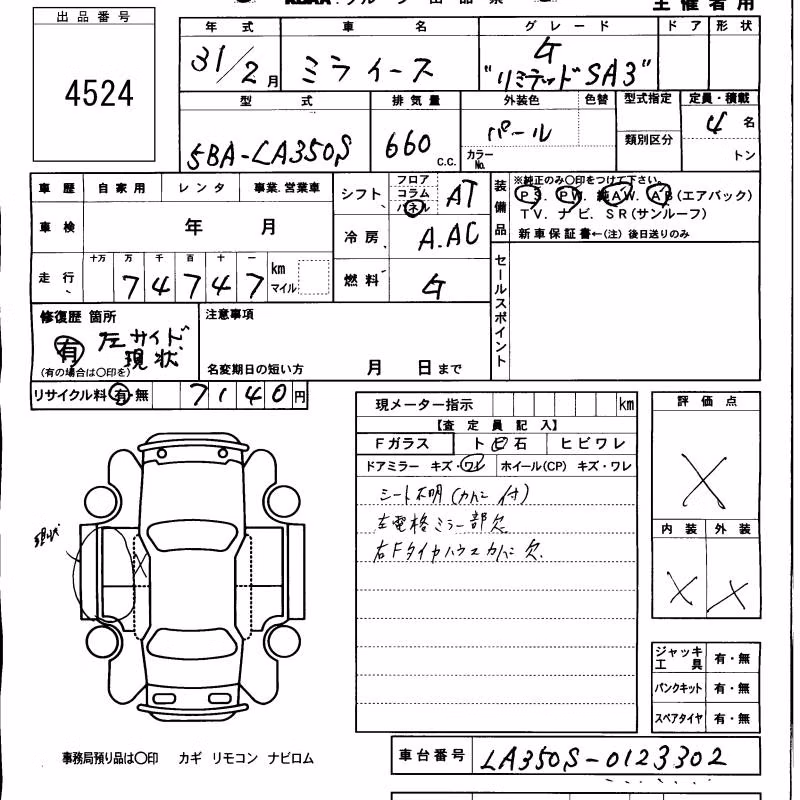 主催者用
出品番号
4524
年式 車名 グレード ドア 形状
31/2月 ミライース G "リミテッドSA3"
型式 排気量 外装色 色替 型式指定 定員・積載
5BA-LA350S 660 c.c. パール カラーNo. 類別区分 4名
トン
車歴 自家用 レンタ 事業.営業車
車検 年 月
走行 十万 万 千 百 十 一
74747 km マイル
シフト フロア コラム パネル AT
冷房 A.AC
燃料 G
装備品 ※純正のみ〇印をつけて下さい。
PS. PW. 純AW. AB(エアバック)
TV. ナビ. SR(サンルーフ)
新車保証書←(注)後日送りのみ
セールスポイント
修復歴 箇所
有 左サイド 現状
(有の場合は〇印を)
注意事項
名変期日の短い方 月 日まで
リサイクル料 有・無 7140円
現メーター指示 km
【査定員記入】
Fガラス ト石 ヒビワレ
ドアミラー キズ・ワレ ホイール(CP) キズ・ワレ
シート不明(カバー付)
左電格ミラー部欠
右Fタイヤハウスカバー欠
評価点
X
内装 外装
X X
現状
X
ジャッキ工具 有・無
パンクキット 有・無
スペアタイヤ 有・無
事務局預り品は〇印 カギ リモコン ナビロム
車台番号 LA350S-0123302